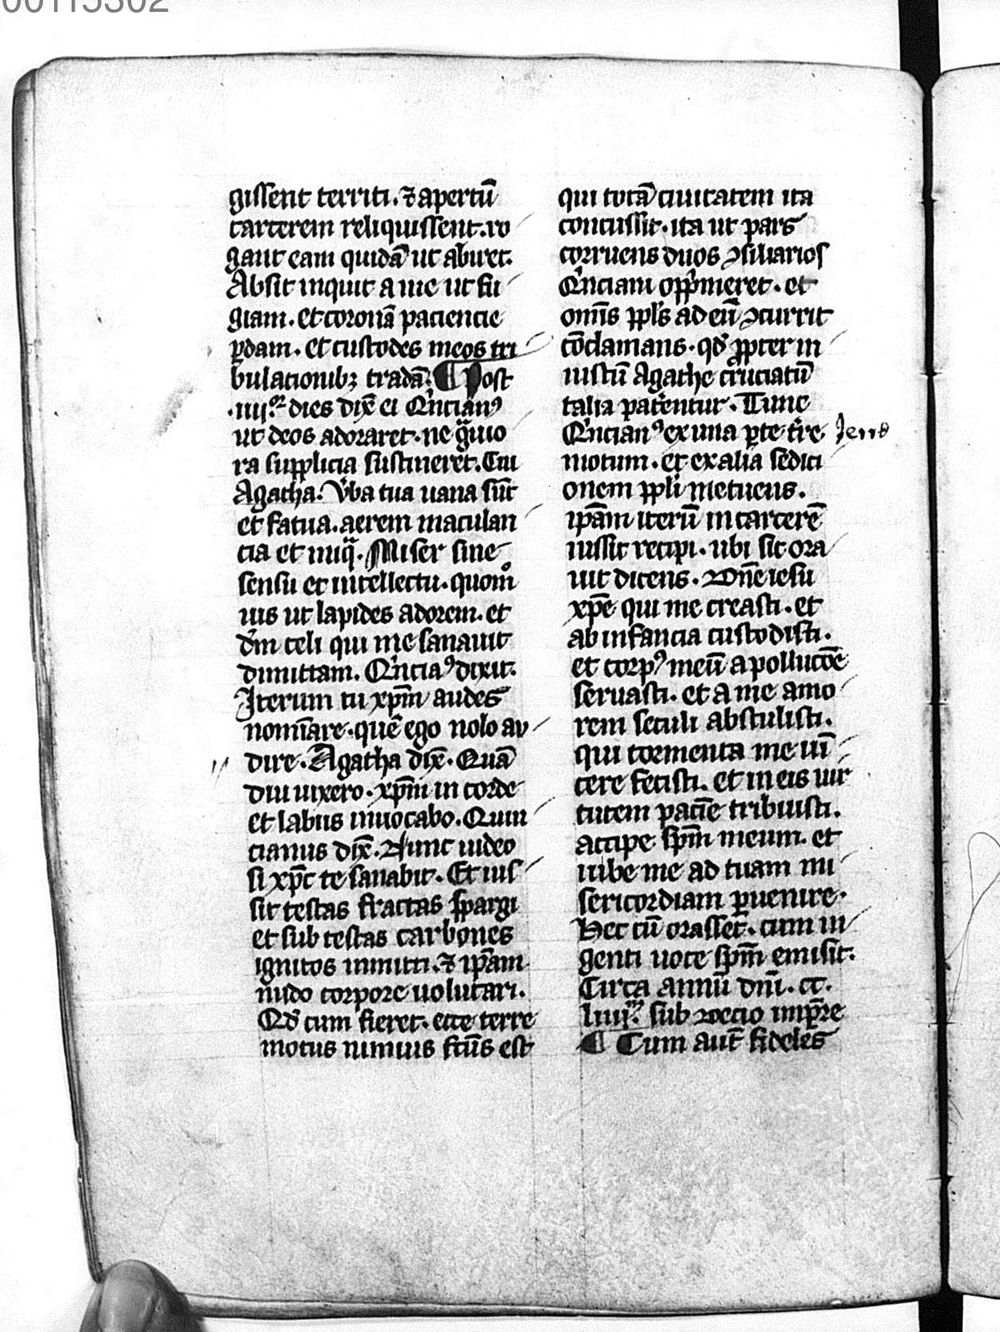 00115302
gissent territi. ⁊ apertū
carcerem reliquissent. ro
gant eam quidā ut abiret.
Absit inquit a me ut fu
giam. et coronā paciencie
ꝑdam. et custodes meos tri
bulacionibꝫ tradā. ¶ Post
.iiii.or dies dix̄ ei Qͥncianꝰ
ut deos adoraret. ne gͣuio
ra supplicia sustineret. Cui
Agatha. Vba tua uana sūt
et fatua. aerem maculan
cia et iniqͣ. Miser sine
sensu et intellectu. quomº
uis ut lapides adorem. et
dm̄ celi qui me sanauit
dimittam. Qͥnciaꝰ dixit.
Iterum tu xp̄m audes
nomīare. quē ego nolo au
dire. Agatha dix̄. Quā
diu uixero. xp̄m in corde
et labiis inuocabo. Quin
cianus dix̄. Nunc uideo
si xp̄c te sanabit. Et ius
sit testas fractas spargi
et sub testas carbones
ignitos inmitti. ⁊ ip̄am
nudo corpore uolutari.
Qd̄ cum fieret. ecce terre
motus nimius fc̄us est
qui totā ciuitatem ita
concussit. ita ut pars
corruens duos ꝯsiliarios
Qͥnciani opp̄meret. et
omīs ppl̄s ad eū ꝯcurrit
cōclamans. qd̄ ꝓpter in
iustū Agathe cͬuciatū
talia paterentur. Tunc
Qͥncianꝰ ex una ꝑte t̄re
motum. et ex alia sedici
onem ppl̄i metuens.
ip̄am iterū in carcerē
iussit recipi. ubi sic ora
uit dicens. Dn̄e iesu
xp̄e qui me creasti. et
ab infancia custodisti.
et corpꝰ meū a pollucōe
seruasti. et a me amo
rem seculi abstulisti.
qui tormenta me uī
cere fecisti. et in eis uir
tutem pacīe tribuisti.
accipe sp̄m meum. et
iube me ad tuam mi
sericordiam ꝑuenire.
Hec cū orasset. cum in
genti uoce sp̄m emisit.
Circa annū dn̄i. cc.
liiii. sub decio imp̄re
¶ Cum aut̄ fideles